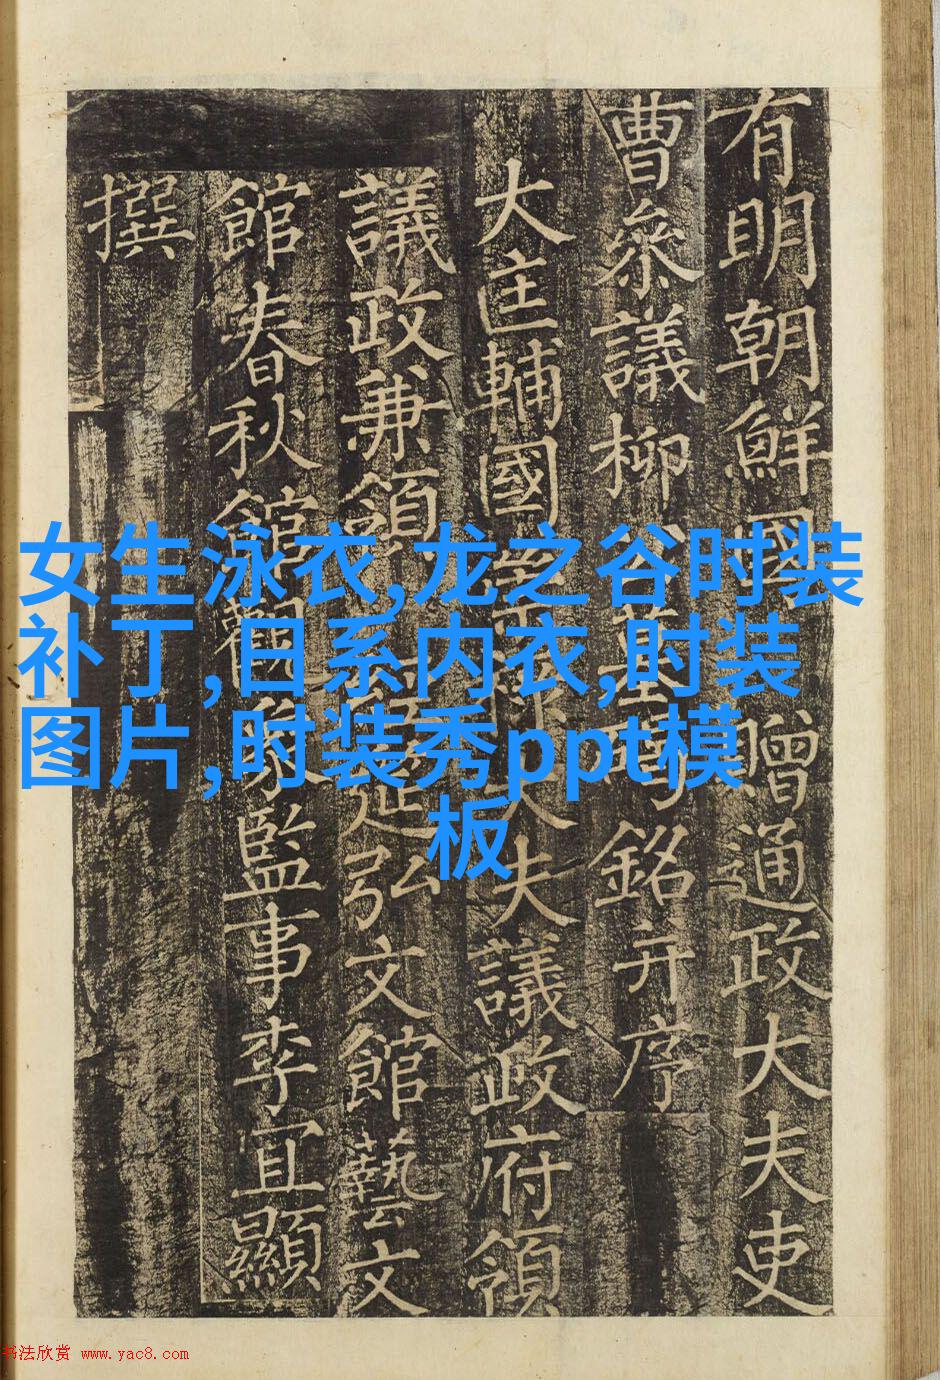 有明朝鮮國贈通政大夫吏
曹叅議柳公墓碣銘并序
大匡輔國崇祿大夫議政府領
議政兼領經筵弘文館藝文
館春秋館觀象監事李宜顯
撰
女生泳衣,龙之谷时装
补丁,日系内衣,时装
图片,时装秀ppt模
板
书法欣赏 www.yac8.com